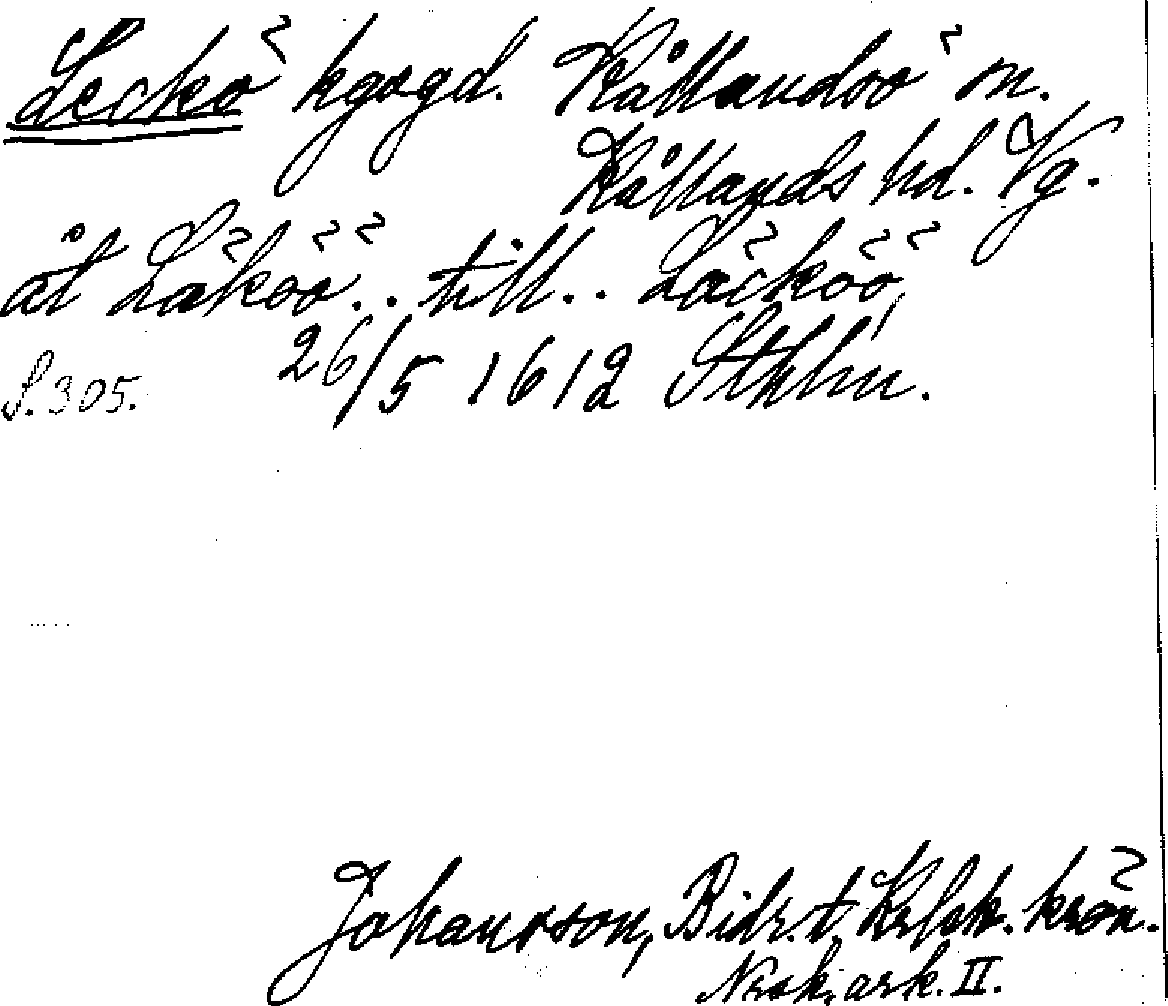 Leckö kgsgd. Kållandsö sn.
Kållands hd. Vg.
åt Läköö.. till.. Läcköö,
S.305. 26/5 1612 Sthlm.
Johansson, Bidr. t. Krſpk. krön.
Nrsk. ark. II.